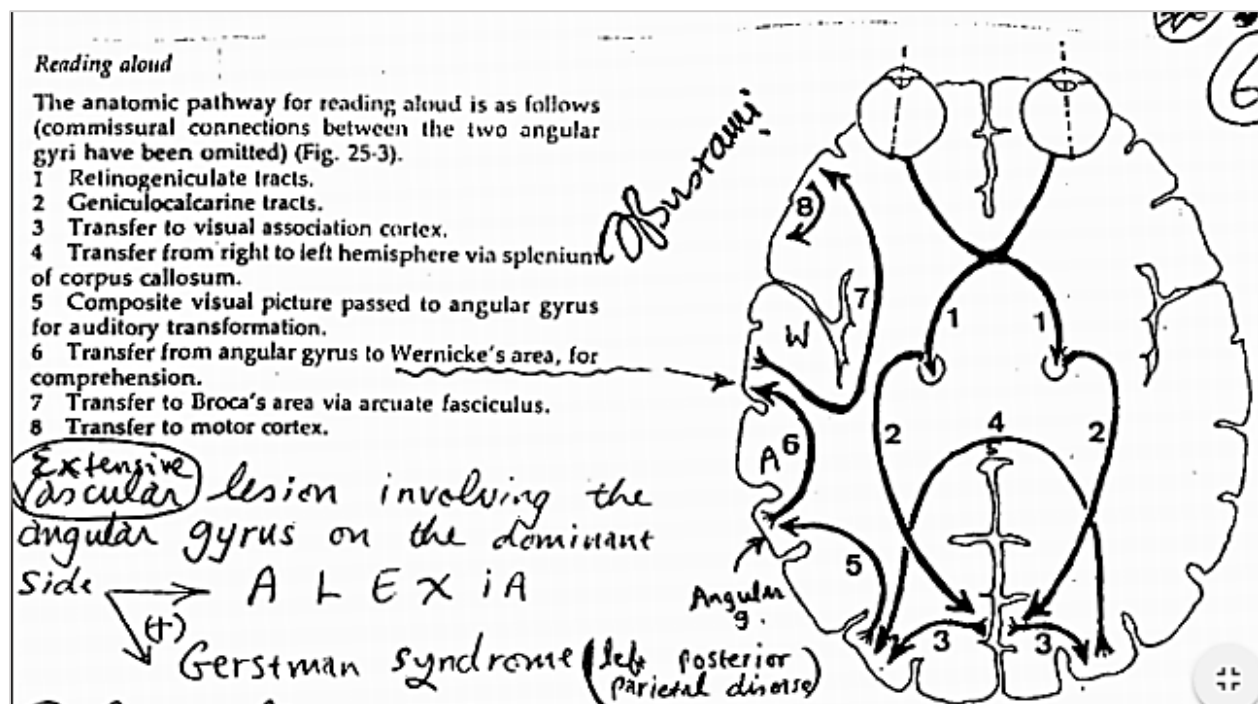 Reading aloud
The anatomic pathway for reading aloud is as follows
(commissural connections between the two angular
gyri have been omitted) (Fig. 25-3).
1 Retinogeniculate tracts.
2 Geniculocalcarine tracts.
3 Transfer to visual association cortex.
4 Transfer from right to left hemisphere via splenium
of corpus callosum.
5 Composite visual picture passed to angular gyrus
for auditory transformation.
6 Transfer from angular gyrus to Wernicke's area, for
comprehension.
7 Transfer to Broca's area via arcuate fasciculus.
8 Transfer to motor cortex.
Extensive
vascular lesion involving the
angular gyrus on the dominant
side → ALEXiA
(+)
Gerstman syndrome (left posterior
parietal disease)
8
7
W
1 1
6
A
2 4 2
5
Angular
g.
3 3